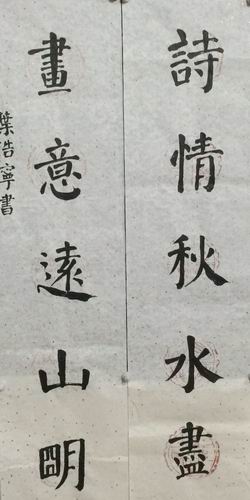 詩情秋水盡
畫意遠山明
葉浩寧書